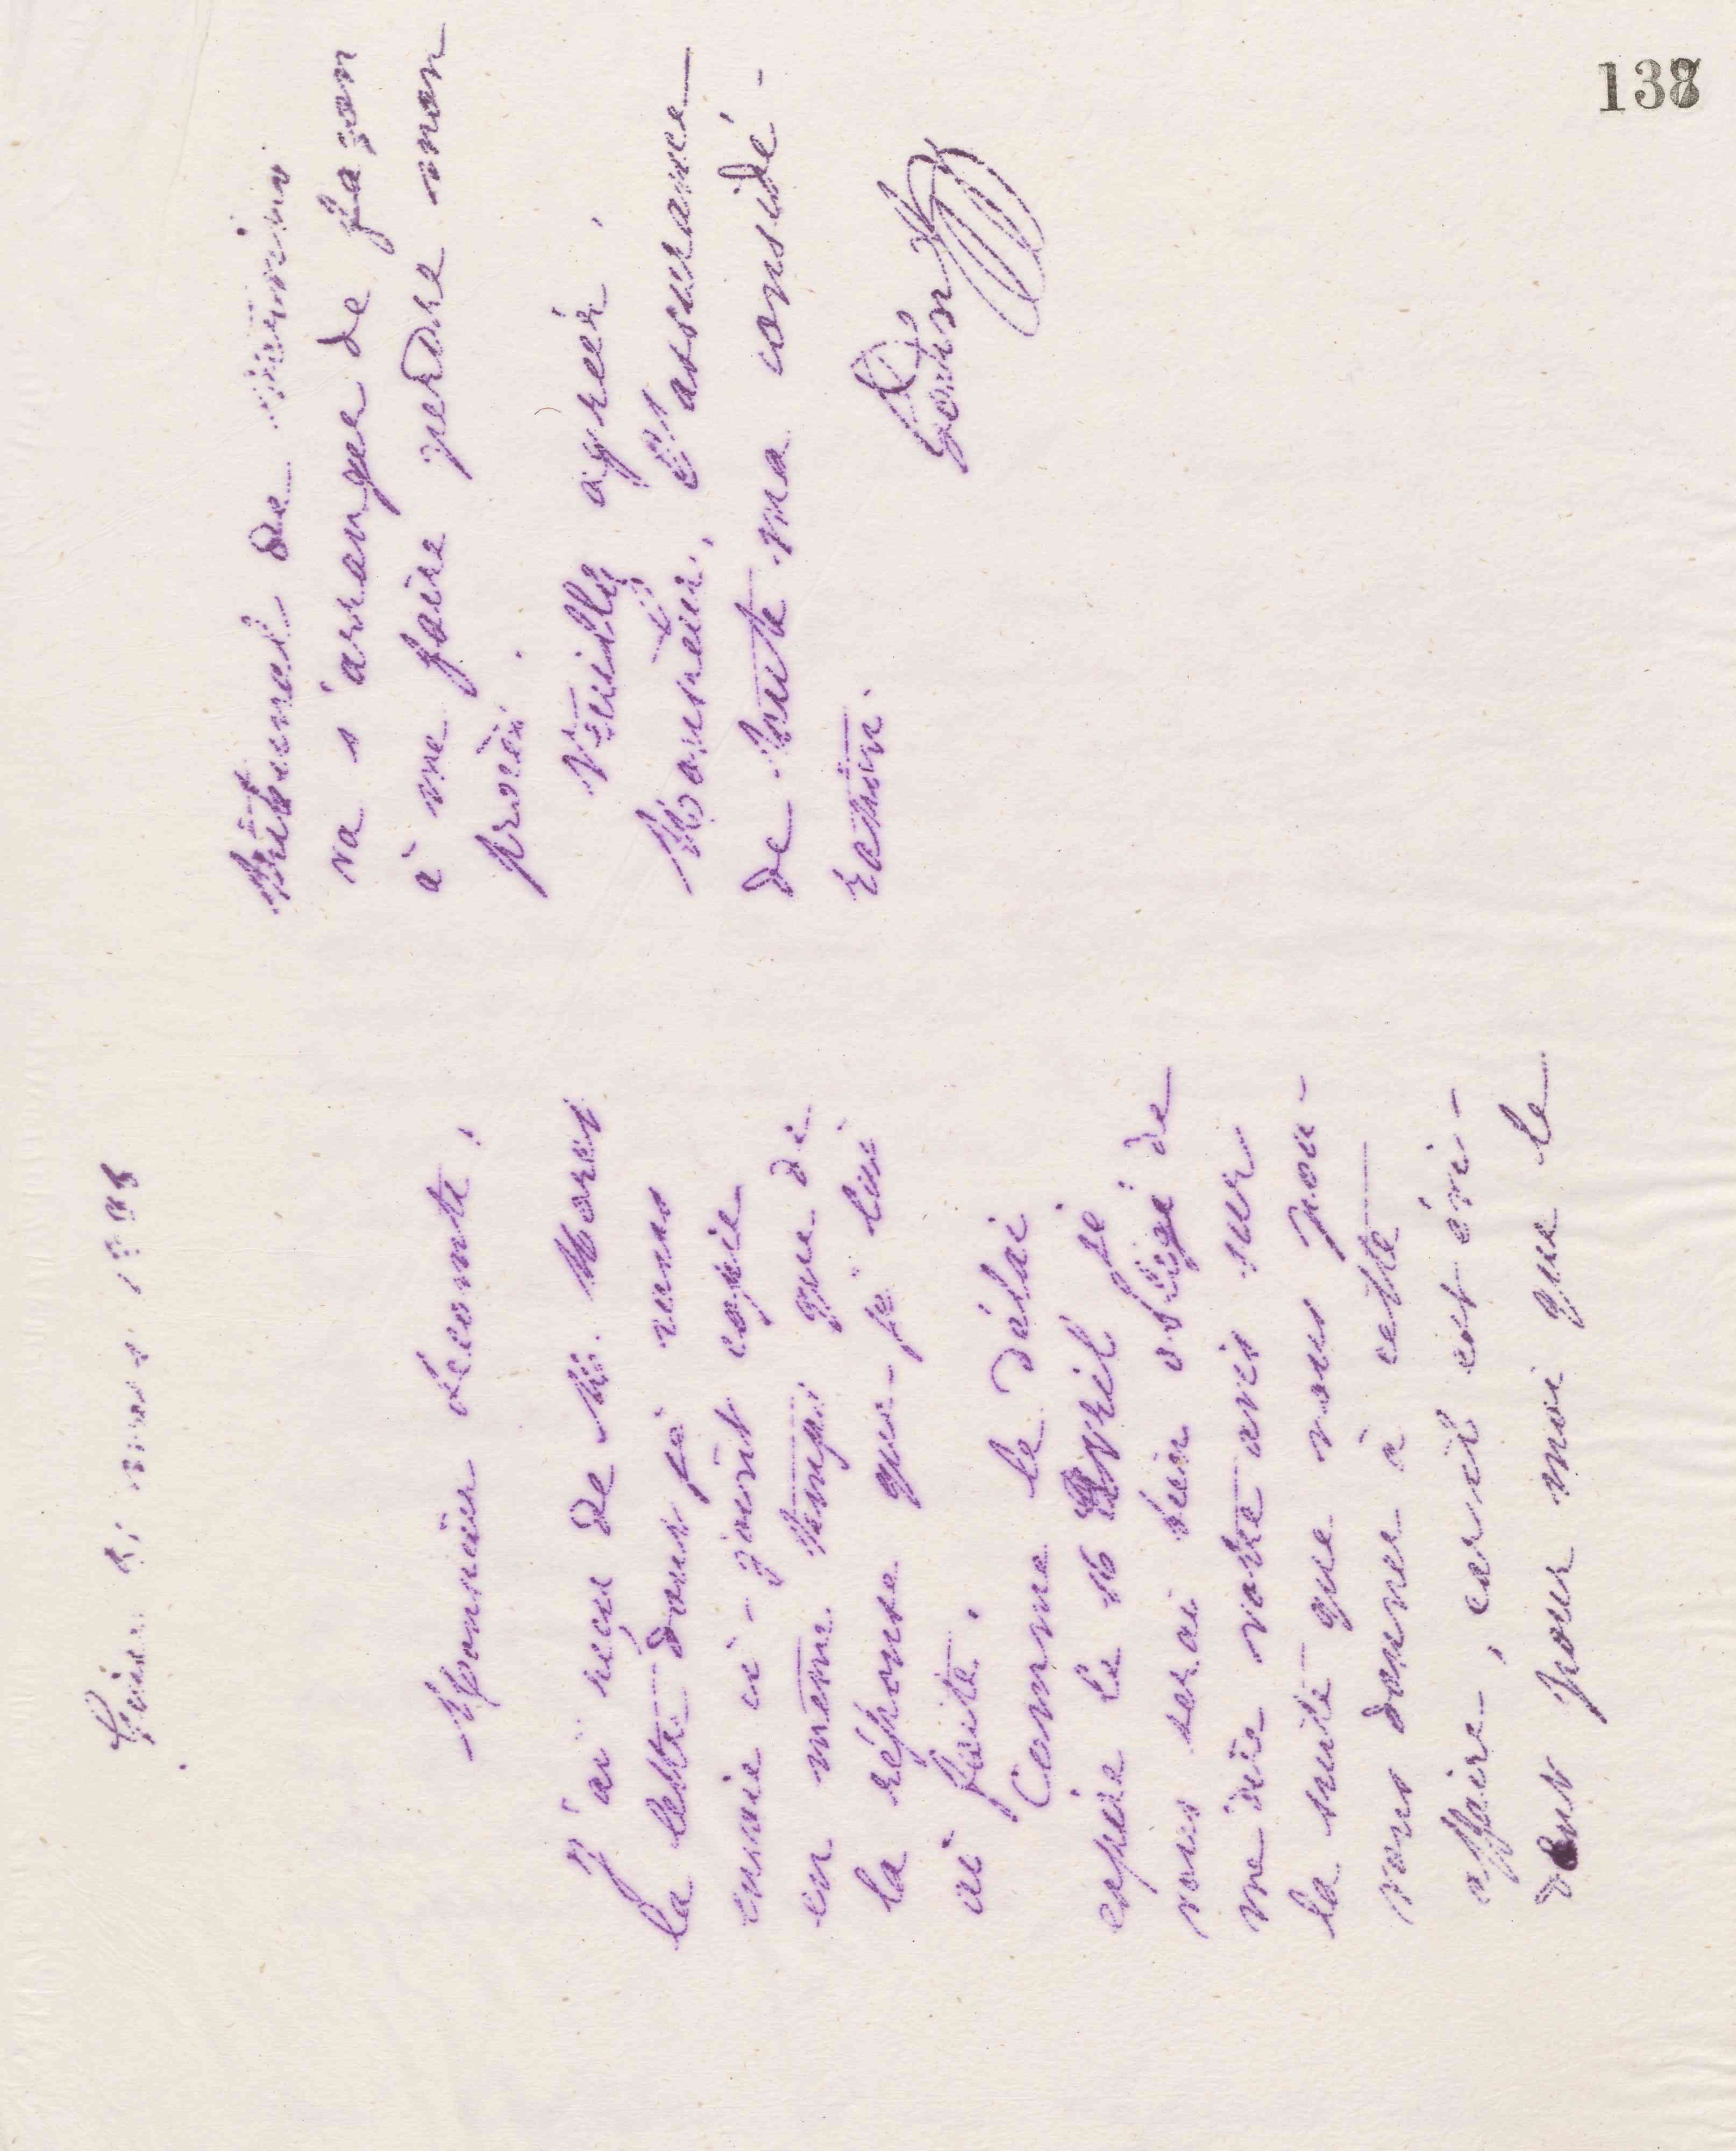 138
Guise mars
Monsieur Lecomte,
J'ai reçu de M. Mores
la lettre dont je vous
envoie ci-joint copie
en même temps que de
la réponse que je lui
ai faite.
Comme le délai
expire le 16 Avril je
vous serai bien obligé de
me dire votre avis sur
la suite que vous pou-
vons donner à cette
affaire, car il est évi-
dent pour moi que le
tribunal de
va s'arranger de façon
à me faire perdre mon
procès.
Veuillez agréer,
Monsieur, l'assurance
de toute ma considé-
ration.
Godin